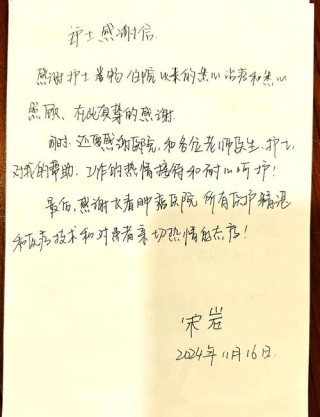 护士感谢信
感谢护士 住院以来的悉心治疗和悉心
照顾，在此真挚的感谢
同时，还要感谢医院，和各位老师医生，护士，
对我的帮助，工作的热情接待和耐心呵护！
最后，感谢长春肿瘤医院 所有医护精湛
和医疗技术和对患者亲切热情的态度！
宋岩
2024年11月16日